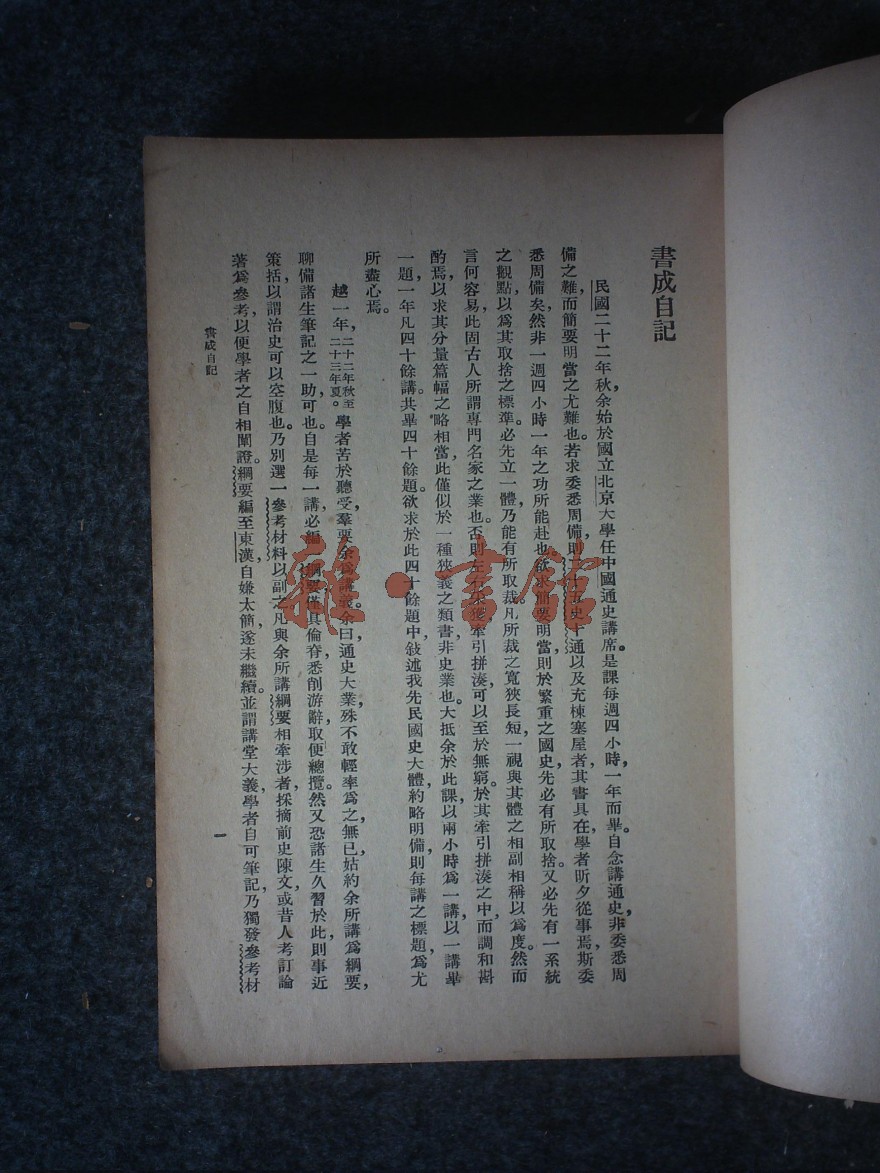 書成自記
民國二十二年秋，余始於國立北京大學任中國通史講席。是課每週四小時，一年而畢。自念講通史，非委悉周
備之難，而簡要明當之尤難也。若求委悉周備，則二十五史十通以及充棟塞屋者，其書具在，學者昕夕從事焉，斯委
悉周備矣。然非一週四小時一年之功所能赴也。欲求簡要明當，則於繁重之國史，先必有所取捨。又必先有一系統
之觀點，以爲其取捨之標準。必先立一體，乃能有所取裁。凡所裁之寬狹長短，一視與其體之相副相稱以爲度。然而
言何容易，此固古人所謂專門名家之業也。否則左右采獲，牽引拼湊，可以至於無窮。於其牽引拼湊之中，而調和斟
酌焉，以求其分量篇幅之略相當，此僅似於一種狹義之類書，非史業也。大抵余於此課，以兩小時爲一講，以一講畢
一題，一年凡四十餘講，共畢四十餘題。欲求於此四十餘題中，敍述我先民國史大體，約略明備，則每講之標題，爲尤
所盡心焉。
越一年，二十二年秋至二十三年夏。學者苦於聽受，羣要余爲講義。余曰，通史大業，殊不敢輕率爲之。無已，姑約余所講爲綱要，
聊備諸生筆記之一助，可也。自是每一講，必編一綱要，僅具倫脊，悉削游辭，取便總攬。然又恐諸生久習於此，則事近
策括，以謂治史可以空腹也。乃別選一參考材料以副之。凡與余所講綱要相牽涉者，採摘前史陳文，或昔人考訂論
著爲參考，以便學者之自相闡證。綱要編至東漢，自嫌太簡，遂未繼續。並謂講堂大義，學者自可筆記，乃獨發參考材
書成自記
一
雜·書館